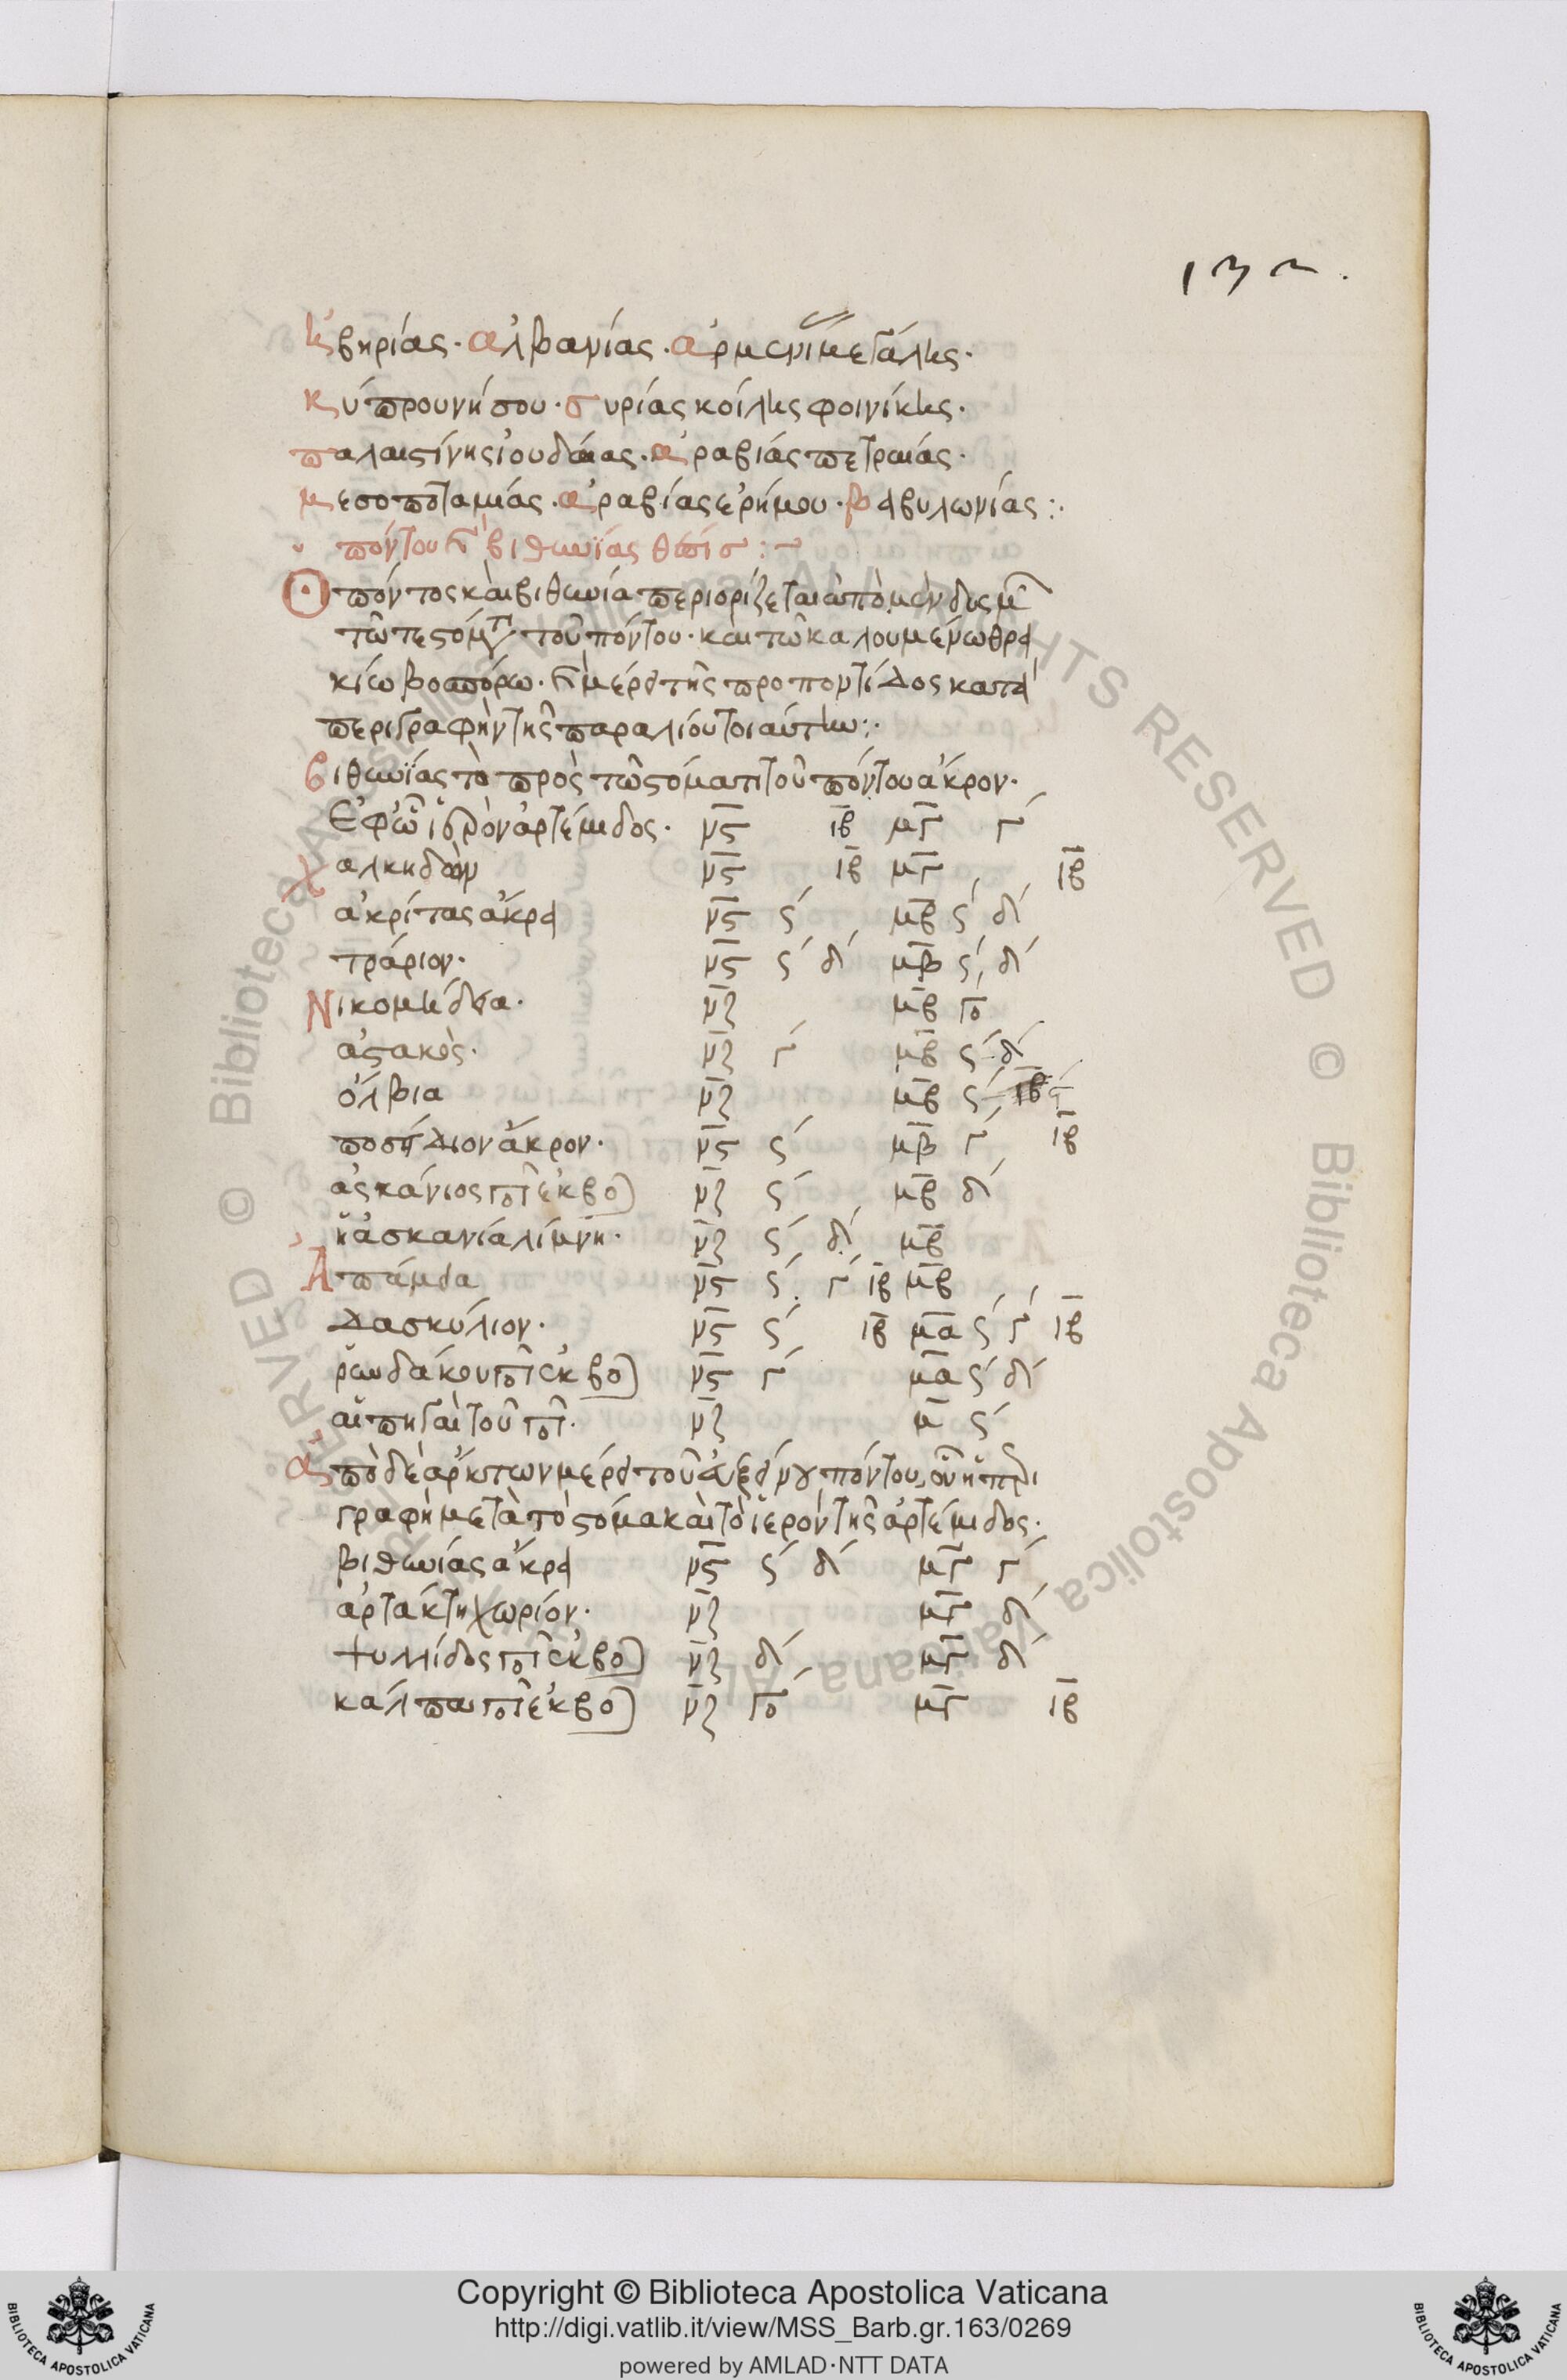 132.
ἰβηρίας. ἀλβανίας. ἀρμενί μεγάλης.
κύπρου νήσου. συρίας κοίλης φοινίκης.
παλαιστίνης ἰουδαίας. ἀραβίας πετραίας.
μεσοποταμίας. ἀραβίας ἐρήμου. βαβυλωνίας:.
πόντου καὶ βιθυνίας θέσισ:~
Ὁ πόντος καὶ βιθυνία περιορίζεται ἀπὸ μὲν δυσμ
τῶ τε στόμτι τοῦ πόντου. καὶ τῶ καλουμένω θρα
κίω βοσπόρω. καὶ μέρει τῆς προποντίδος κατὰ
περιγραφὴν τῆς παραλίου τοιαύτην:.
βιθυνίας τὸ πρὸς τῶ στόματι τοῦ πόντου ἄκρον.
Ἐφ ὧ ἱερὸν ἀρτέμιδος. νϛ ιβ μγ γ
χαλκηδὼν νϛ ιβ μγ ιβ
ἀκρίτας ἄκρα νϛ ϛ μβ ϛ δ
τράριον. νϛ ϛ δ μβ ϛ δ
Νικομήδεια. νζ μβ γο
ἀστακὸς. νζ γ μβ ϛ δ
ὀλβια νζ μβ ϛ
ποσήδιον ἄκρον. νϛ ϛ μβ γ ιβ
ἀσκάνιος ποτ ἐκβο νζ ϛ μβ δ
ἡ ἀσκανία λίμνη. νζ ϛ δ μβ
Ἀπάμεια νϛ ϛ γ ιβ μβ
Δασκύλιον. νϛ ϛ ιβ μα ϛ γ ιβ
ῥυνδάκου ποτ ἐκβο νϛ γ μα ϛ δ
αἱ πηγαὶ τοῦ ποτ. νζ μ ϛ
ἀπὸ δὲ ἄρκτων μέρει τοῦ εὐξείνου πόντου, οὗ ἡ περι
γραφὴ μετὰ τὸ στόμα καὶ τὸ ἱερὸν τῆς ἀρτέμιδος.
βιθυνίας ἄκρα νϛ ϛ δ μγ γ
ἀρτάκτη χωρίον. νζ μγ δ
ψυλλίδος ποτ ἐκβο νζ δ μγ δ
καλπα ποτ ἐκβο νζ γο μγ ιβ
Copyright © Biblioteca Apostolica Vaticana
http://digi.vatlib.it/view/MSS_Barb.gr.163/0269
powered by AMLAD·NTT DATA
BIBLIOTECA APOSTOLICA VATICANA
BIBLIOTECA APOSTOLICA VATICANA